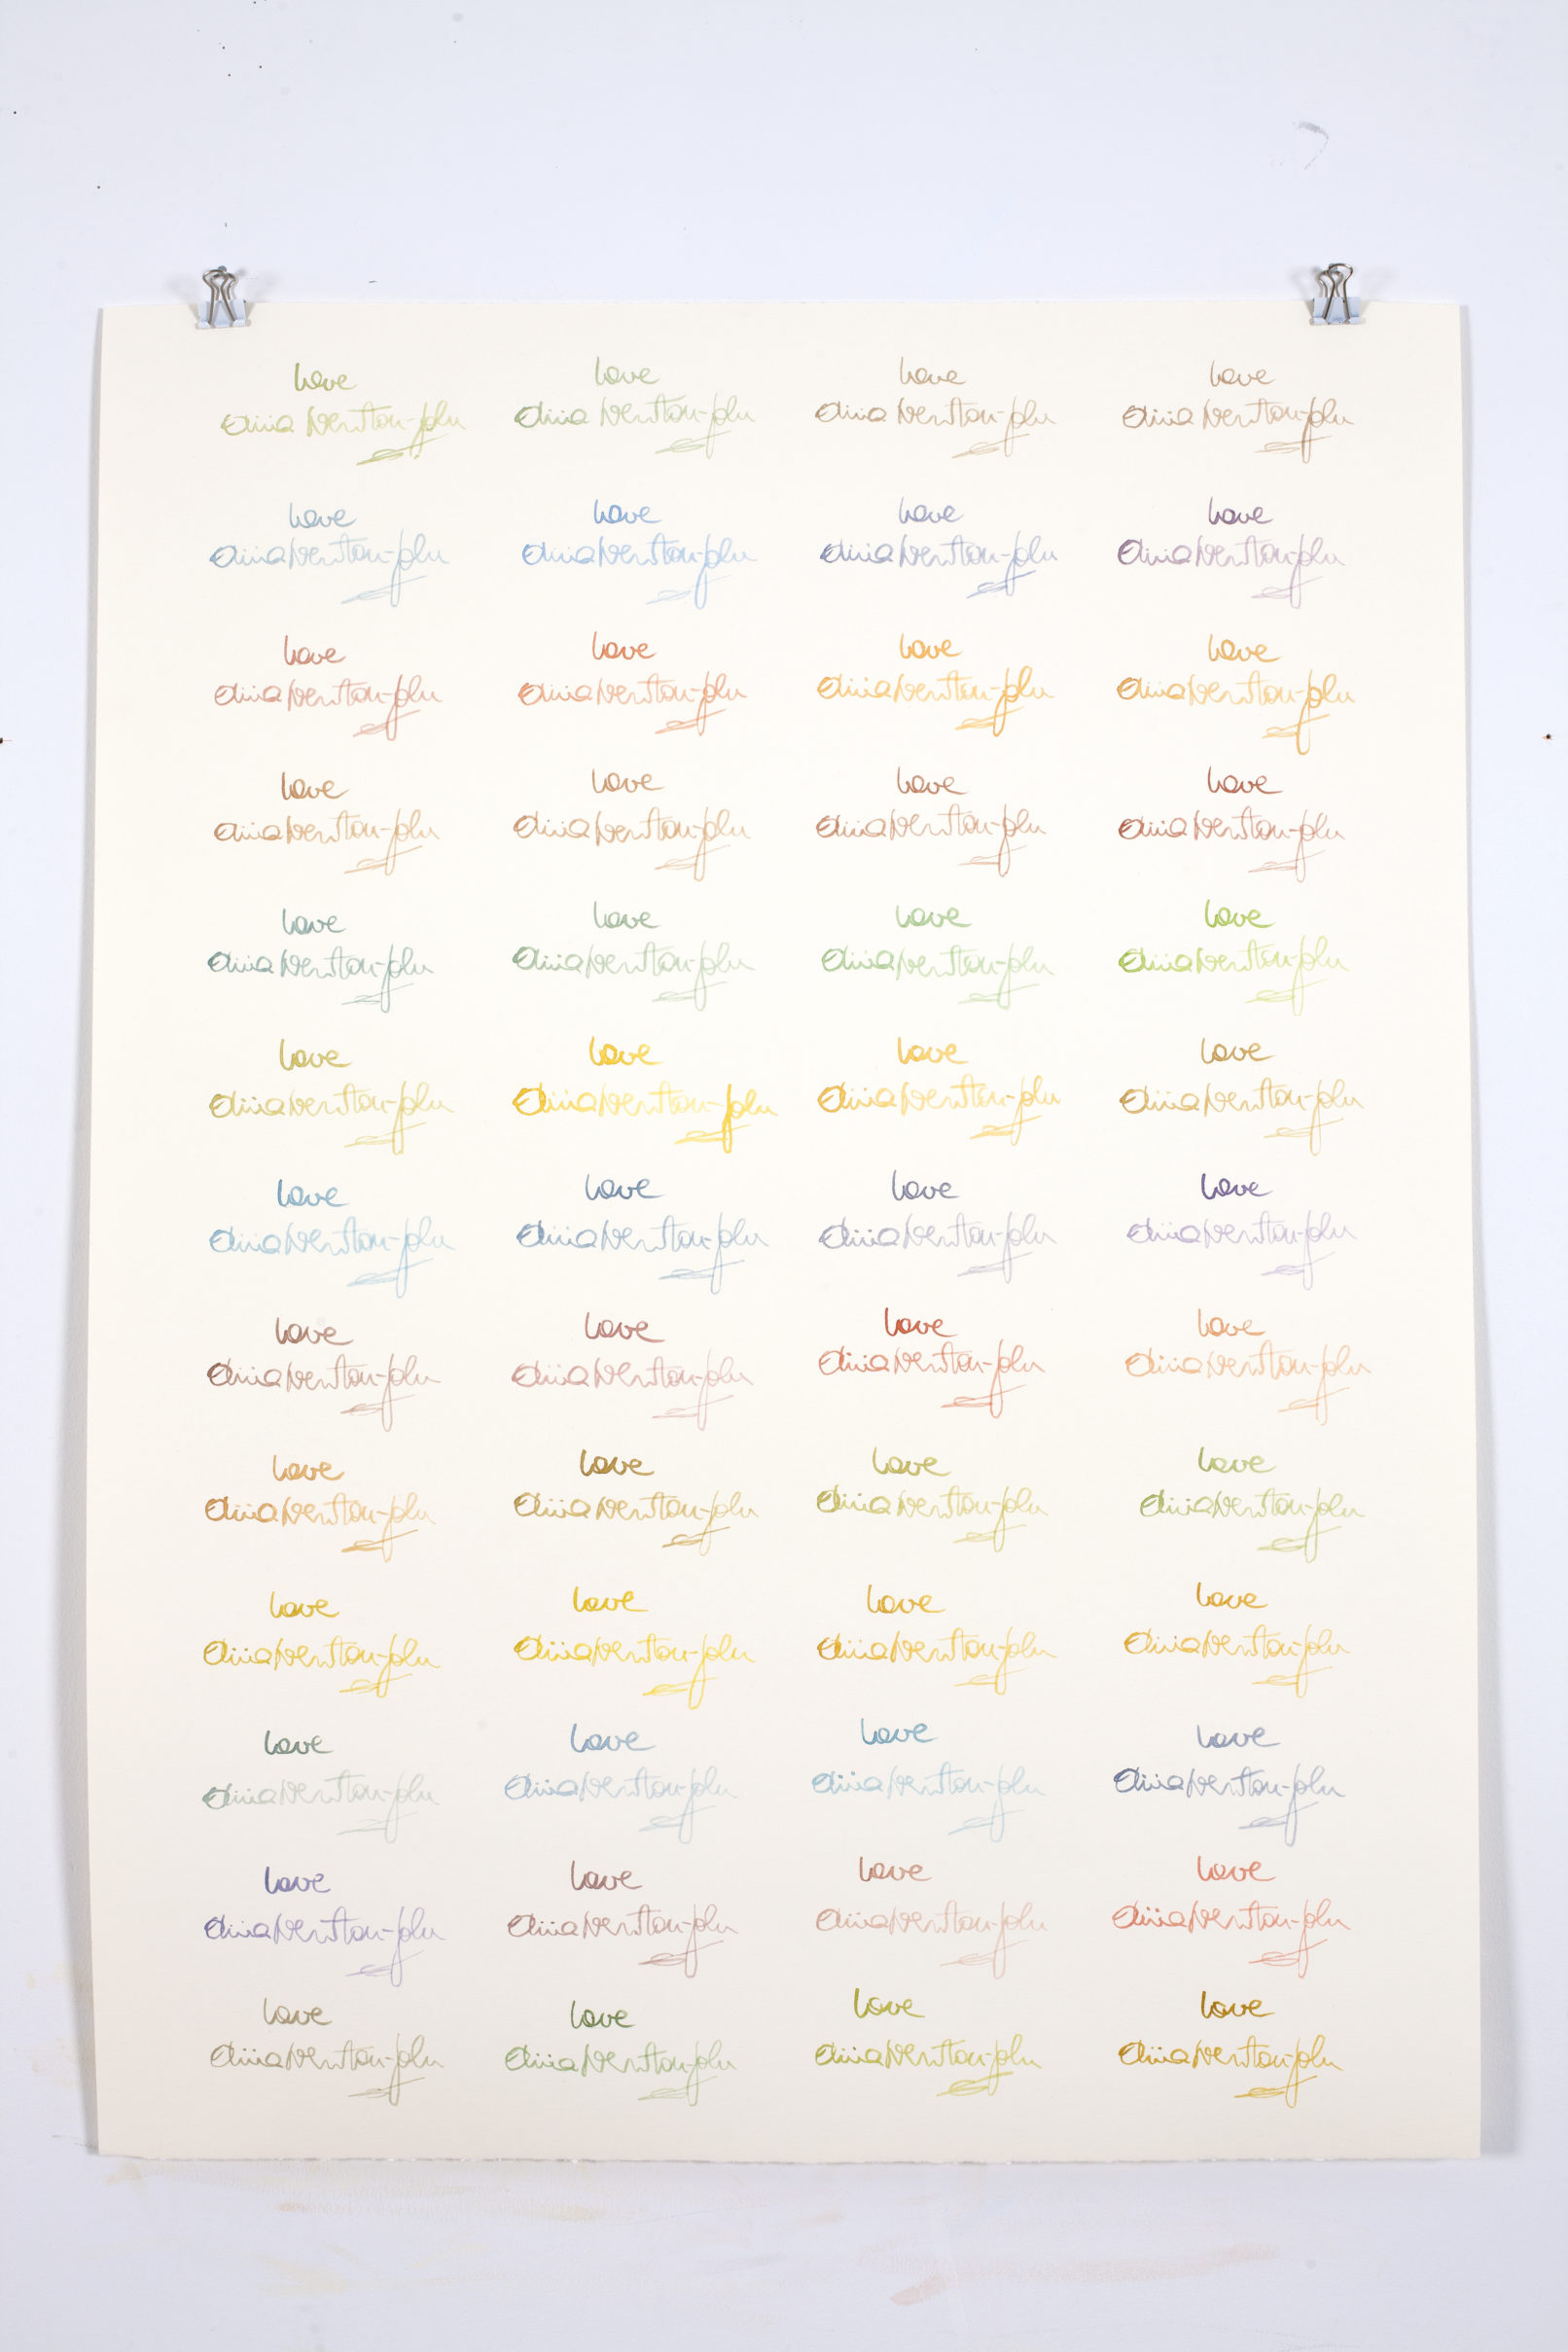 love love love love
Olivia Newton-John Olivia Newton-John Olivia Newton-John Olivia Newton-John
love love love love
Olivia Newton-John Olivia Newton-John Olivia Newton-John Olivia Newton-John
love love love love
Olivia Newton-John Olivia Newton-John Olivia Newton-John Olivia Newton-John
love love love love
Olivia Newton-John Olivia Newton-John Olivia Newton-John Olivia Newton-John
love love love love
Olivia Newton-John Olivia Newton-John Olivia Newton-John Olivia Newton-John
love love love love
Olivia Newton-John Olivia Newton-John Olivia Newton-John Olivia Newton-John
love love love love
Olivia Newton-John Olivia Newton-John Olivia Newton-John Olivia Newton-John
love love love love
Olivia Newton-John Olivia Newton-John Olivia Newton-John Olivia Newton-John
love love love love
Olivia Newton-John Olivia Newton-John Olivia Newton-John Olivia Newton-John
love love love love
Olivia Newton-John Olivia Newton-John Olivia Newton-John Olivia Newton-John
love love love love
Olivia Newton-John Olivia Newton-John Olivia Newton-John Olivia Newton-John
love love love love
Olivia Newton-John Olivia Newton-John Olivia Newton-John Olivia Newton-John
love love love love
Olivia Newton-John Olivia Newton-John Olivia Newton-John Olivia Newton-John